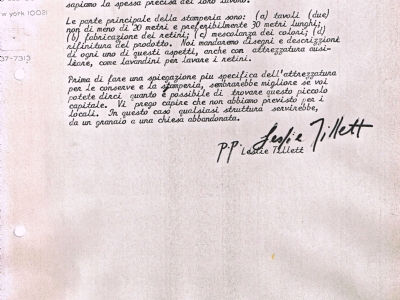 sapiamo la spessa precisa del loro lavoro.
new york 10021
Le parte principale della stamperia sono: (a) tavoli (due)
non di meno di 20 metri e preferibilmente 30 metri lunghi;
(b) fabricazione dei retini; (c) mescolanza dei colori; (d)
rifinitura del prodotto. Noi mandaremo disegni e descrizioni
di ogni uno di questi aspetti, anche con attrezzatura ausi-
liare, come lavandini per lavare i retini.
37-7313
Prima di fare una spiegazione piu specifica dell'attrezzatura
per le conserve e la stamperia, sembrarebbe migliore se voi
potete dirci quanto è possibile di trovare questo piccolo
capitale. Vi prego capire che non abbiamo previsto per i
locali. In questo caso qualsiasi struttura servirebbe,
da un granaio a una chiesa abbandonata.
Leslie Tillett
p.p. Leslie Tillett